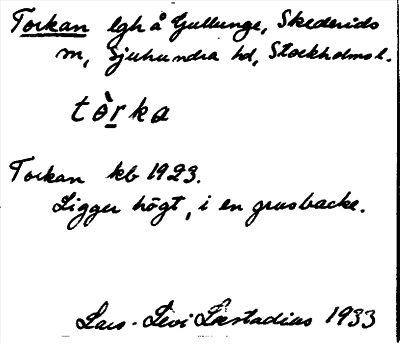 Torkan lgh å Gullunge, Skederids
m, Sjuhundra hd, Stockholms l.
tòrka
Torkan kb 1923.
Ligger högt, i en grusbacke.
Lars-Levi Læstadius 1933